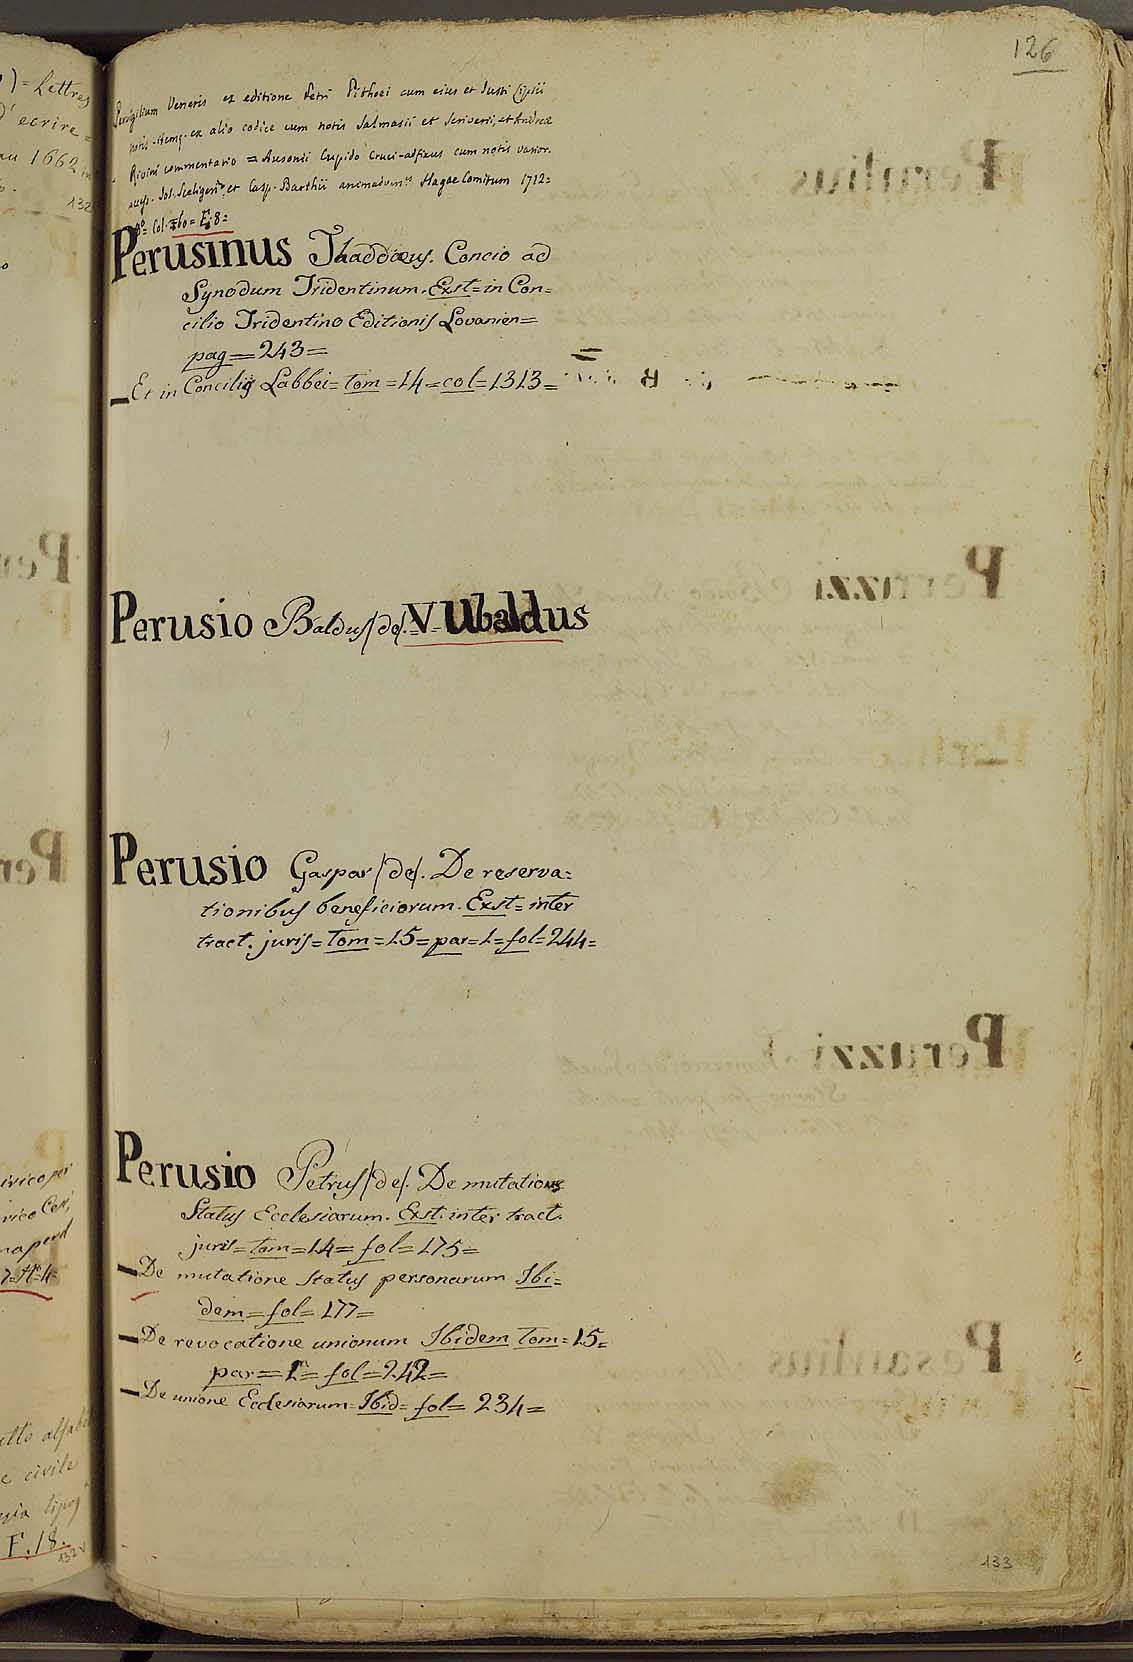 126
Pervigilium Veneris ex editione Petri Pithoei cum eius et Justi Lipsii
notis. Itemq. ex alio codice cum notis Salmasii et Scriverii, et Andreæ
Rivini commentario = Ausonii Cupido Cruci-adfixus cum notis varior.
Jos. Scaligeri, et Casp. Barthii Hagae Comitum 1712=
8º= Col. F. 8=
Perusinus Thaddæus. Concio ad
Synodum Tridentinum. Exst= in Con=
cilio Tridentino Editionis Lovanien=
pag= 243=
Et in Conciliis Labbei= tom= 14= col= 1313=
Perusio Baldus/de/. V= Ubaldus
Perusio Gaspar/de/. De reserva=
tionibus beneficiorum. Exst= inter
tract. juris= tom= 15= par= 1= fol= 244=
Perusio Petrus/de/. De mutatione
Status Ecclesiarum. Exst. inter tract.
juris= tom= 14= fol= 175=
De mutatione Status personarum Ibi=
dem= fol= 177=
De revocatione unionum Ibidem tom= 15=
par= fol= 242=
De unione Ecclesiarum= Ibid= fol= 234=
133
)= Lettres
d'ecrire=
1662 in
132
F.18.
132v